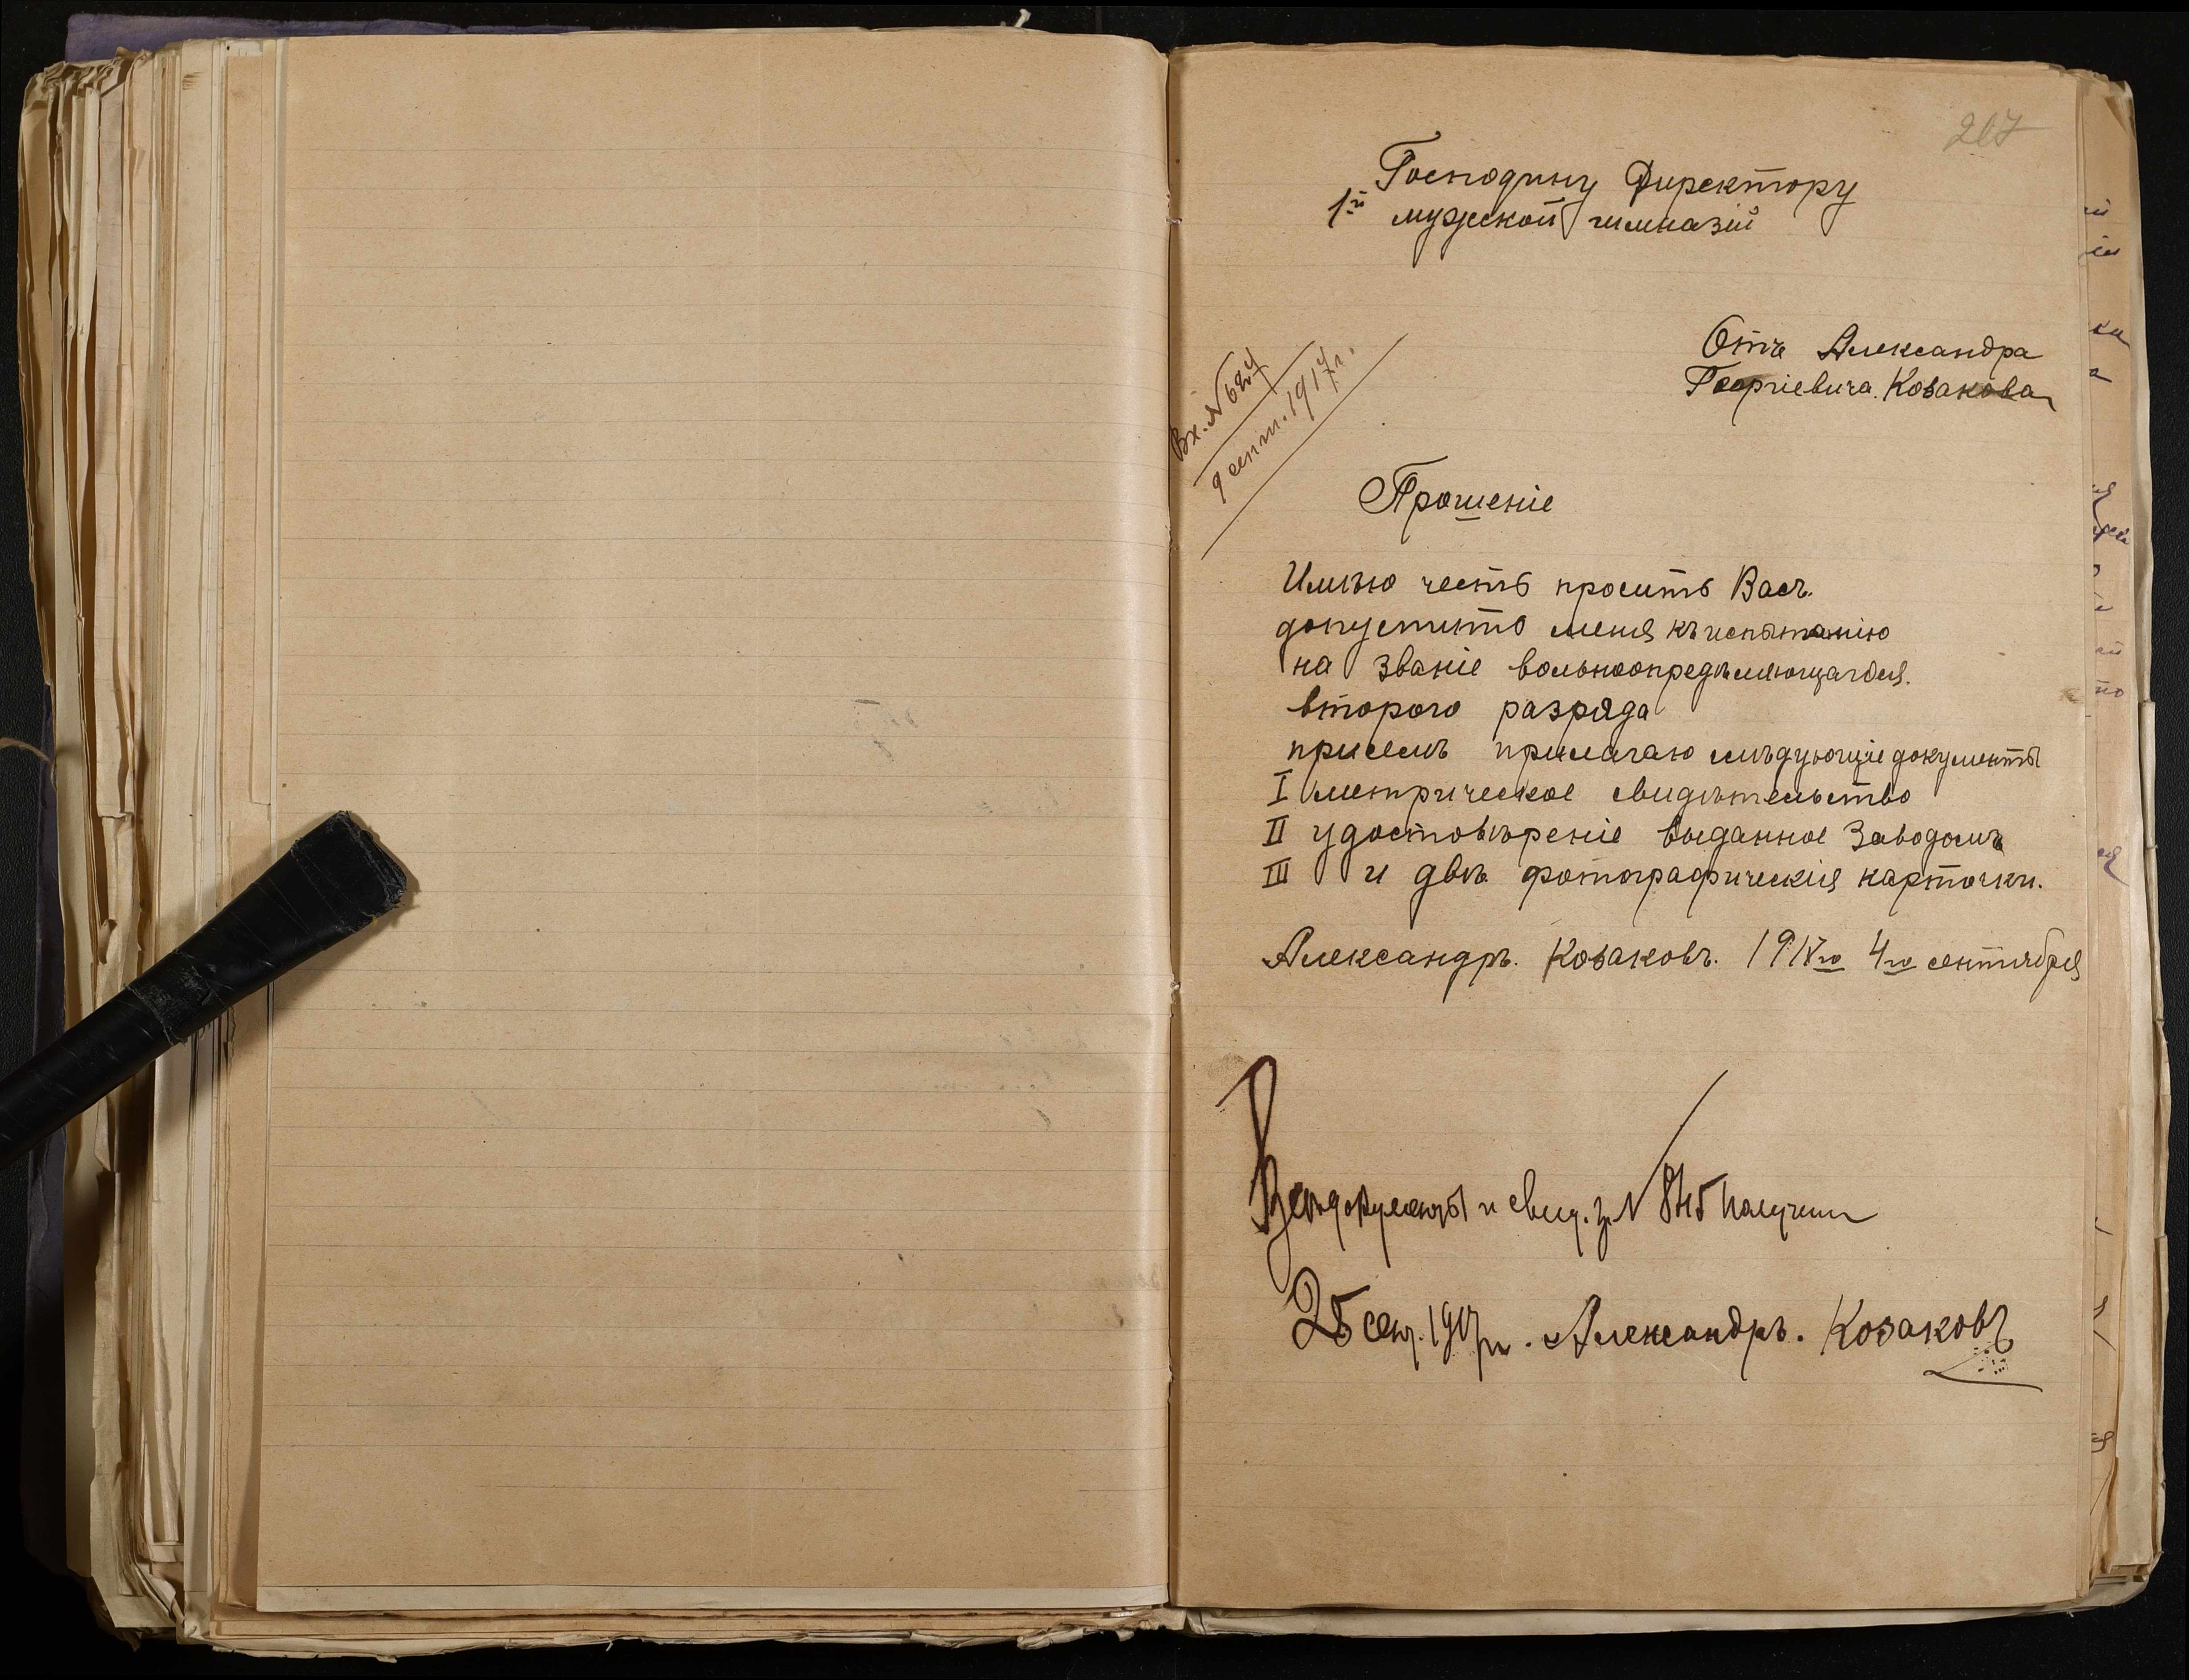 207
Господину Директору
1-й мужской гимназій
Отъ Александра
Георгіевича Козакова
Вх. № 627
9 сент. 1917 г.
Прошеніе
Имѣю честь просить Васъ.
допустить меня къ испытанію
на званіе вольноопредѣляющагося.
второго разряда
присемъ прилагаю слѣдующіе документы
I метрическое свидѣтельство
II удостовѣреніе выданное Заводомъ
III и двѣ фотографическія карточки.
Александръ. Козаковъ. 1917го 4го сентября
документы и свид. за № 845 получилъ
25 сент. 1917 г. Александръ. Козаковъ